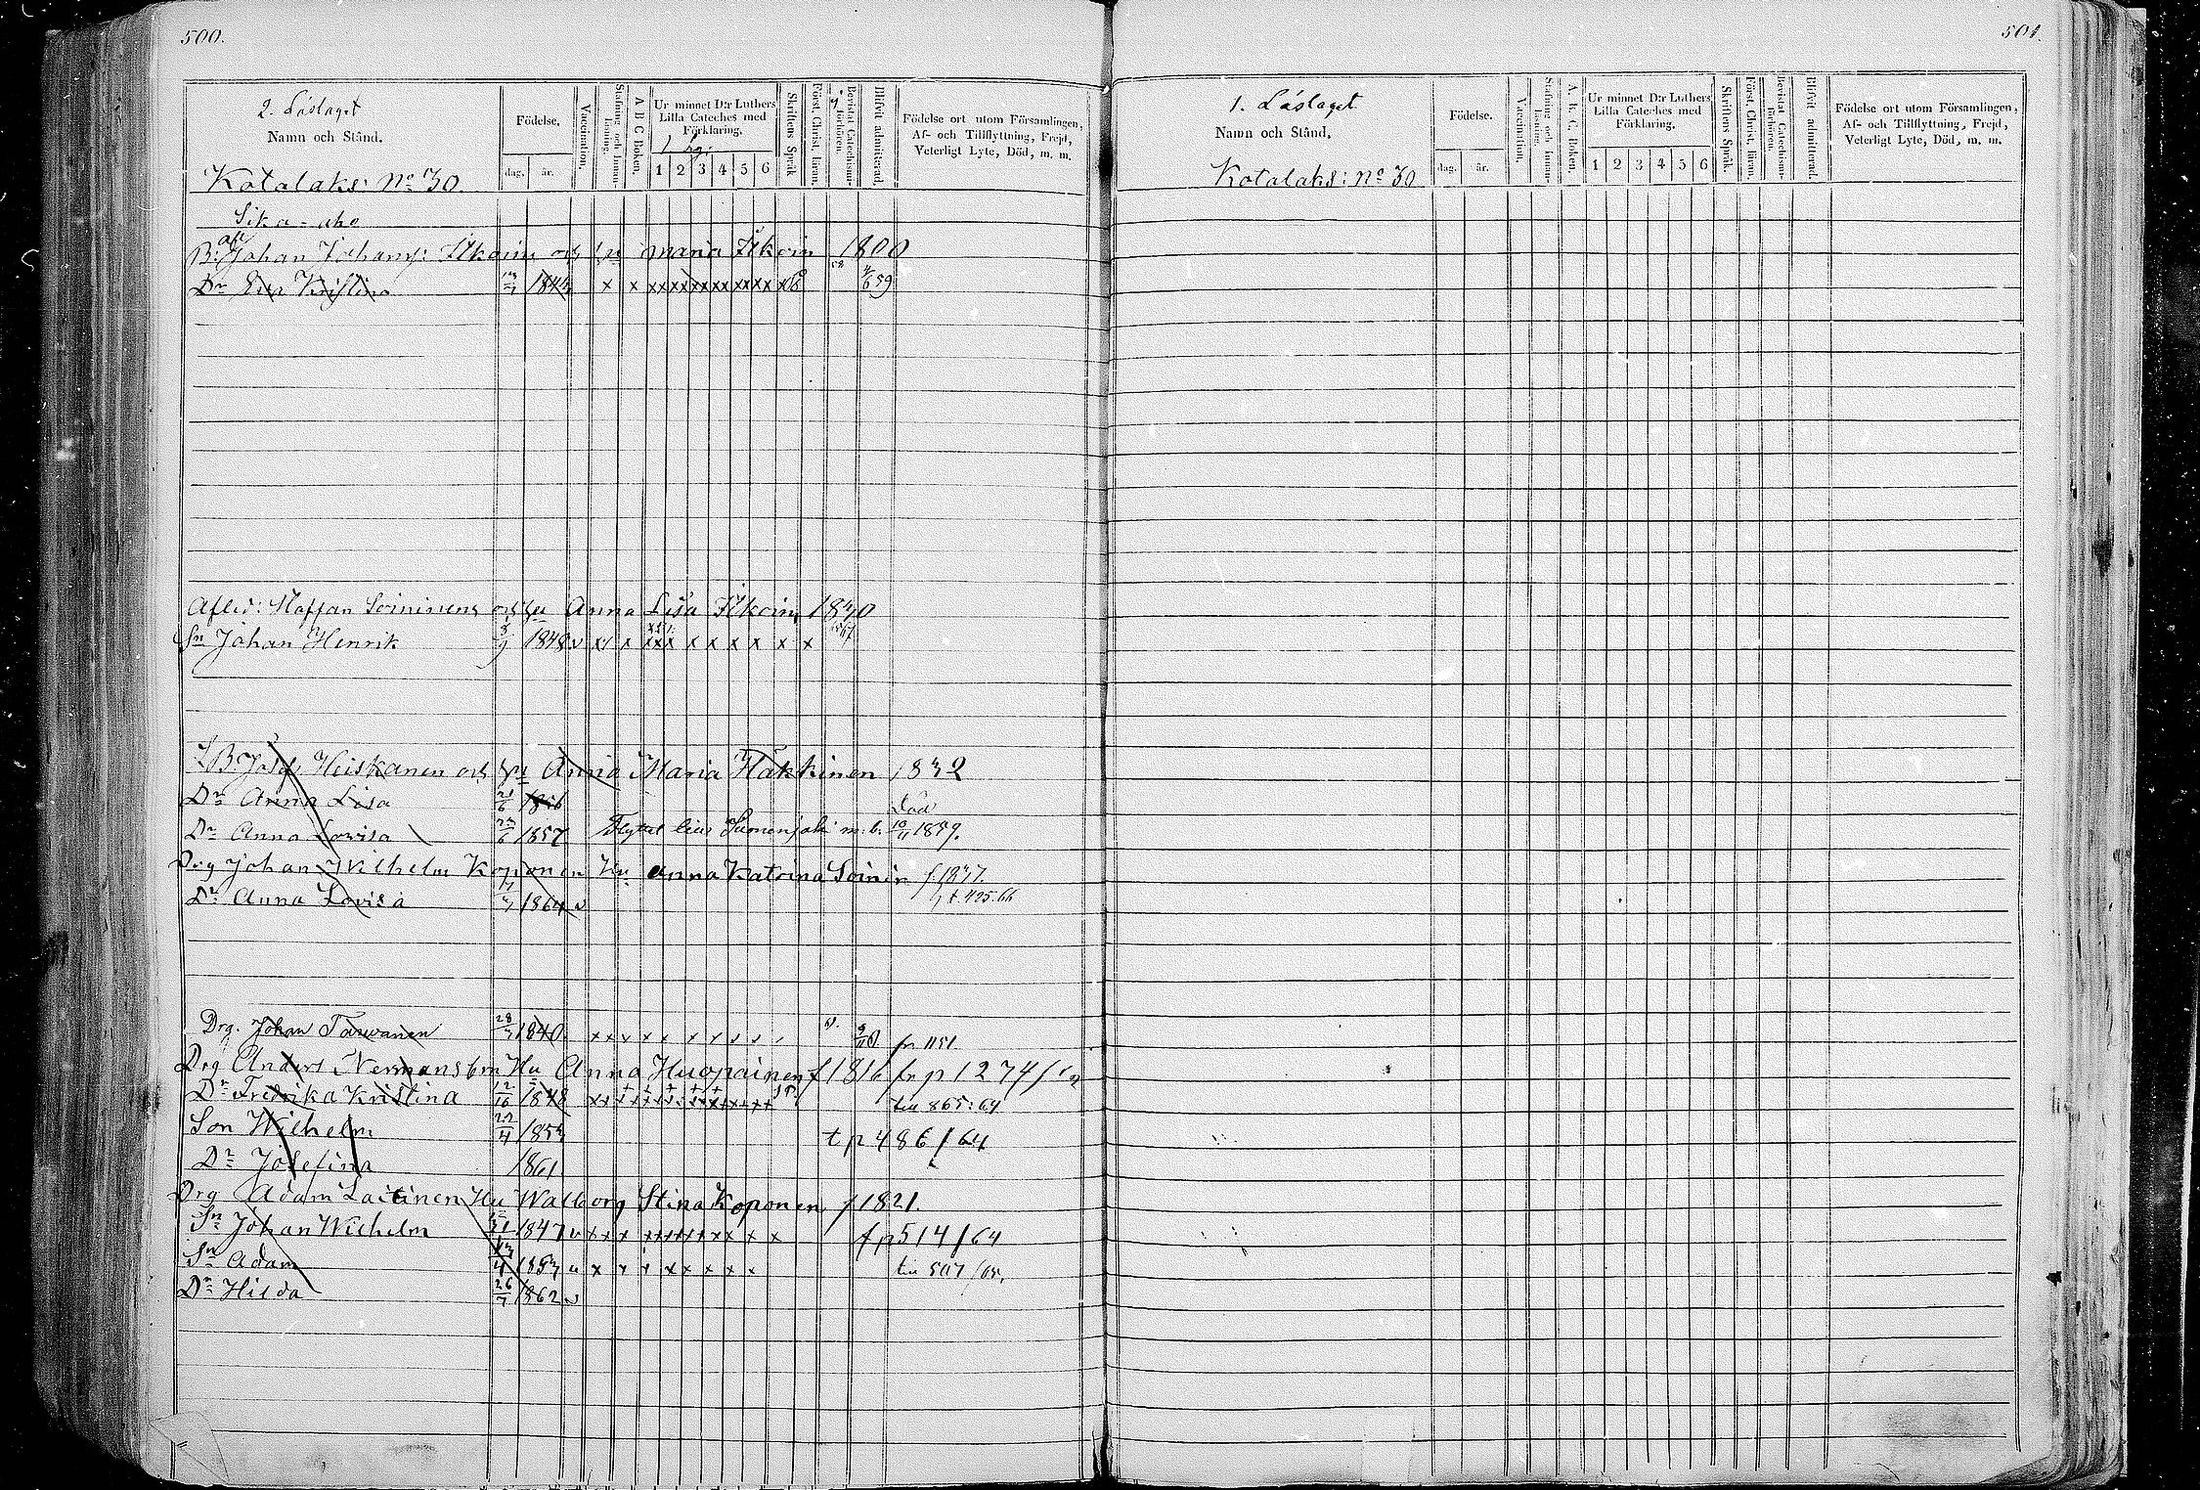 500.
2. Läslaget
Namn och Stånd.
Födelse.
dag. år.
Vaccination.
Stafning och Innanläsning.
A B C Boken.
Ur minnet D:r Luthers Lilla Cateches med Förklaring.
1 2 3 4 5 6
Skriftens Språk
Först. Christ. läran.
Bevistat Catechismiförhören.
Blifvit admitterad.
Födelse ort utom Församlingen, Af- och Tillflyttning, Frejd, Veterligt Lyte, Död, m. m.
Kotalaks: No 30.
Sika-aho
B: Johan Johans: Itkoin och Hu Maria Itkoin 1800
Dr Eva Kristina x x xx xx xx xx xx xx x 6/59
Afled: Staffan Soininens och Hu Anna Lisa Itkoin,
Sn Johan Henrik 1848 v x x x x x x x x x
B: Josef Heiskanen och Hu Anna Maria Häkkinen 1832
Dr Anna Lisa 21/6
Död
Dr Anna Lovisa 1857 10/11 1859.
Drg Johan Wilhelm Koponen Hu Anna Katrina Soinin
Dr Anna Lovisa 1864 v t 425.66
Drg. Johan Tarvanen 28/3 1840 x x x x x x x fr 1151.
Drg Anders Nermansbm Hu Anna Huopainen f 1816 fr p 1274/62
Dr Fredrika Kristina 12/10 1848 till 865:64
Son Wilhelm 22/4 t p 486/64
Dr Josefina 1861
Drg Adam Laitinen Hu Walborg Stina Koponen f 1821.
Sn Johan Wilhelm 1847 v x x x x x x x x x f p 514/64
Sn Adam 1853 x x x x x x x till 507/65.
Dr Hilda 26/7 1862 v
501.
1. Läslaget
Namn och Stånd.
Födelse.
dag. år.
Vaccination.
Stafning och Innanläsning.
A. B. C. Boken.
Ur minnet D:r Luthers Lilla Cateches med Förklaring.
1 2 3 4 5 6
Skriftens Språk.
Först. Christ. läran.
Bevistat Catechismiförhören.
Blifvit admitterad.
Födelse ort utom Församlingen, Af- och Tillflyttning, Frejd, Veterligt Lyte, Död, m. m.
Kotalaks: No 30